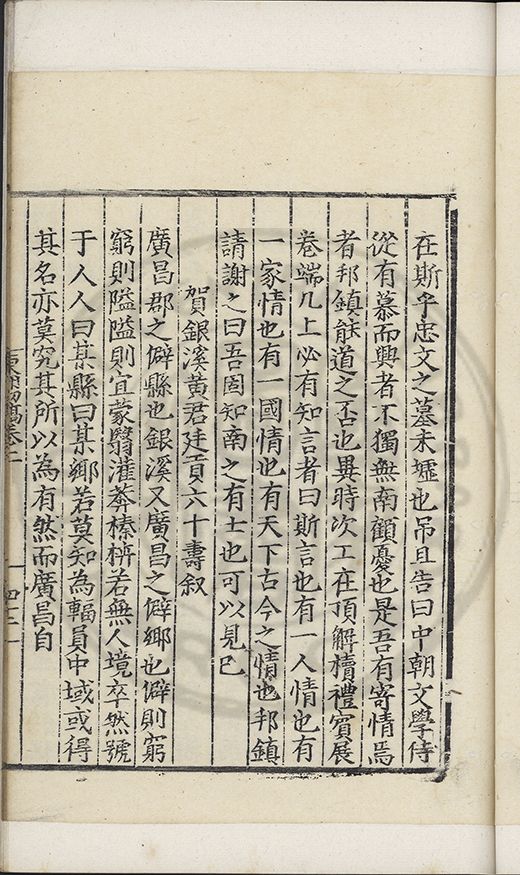 在斯乎忠文之墓未墟也吊且告曰中朝文學侍
從有慕而興者不獨無南顧憂也是吾有寄情焉
者邦鎮能道之否也異時次工在頂解櫝禮賓展
卷端几上必有知言者曰斯言也有一人情也有
一家情也有一國情也有天下古今之情也邦鎮
請謝之曰吾固知南之有士也可以見已
賀銀溪黃君廷貢六十壽叙
廣昌郡之僻縣也銀溪又廣昌之僻鄉也僻則窮
窮則隘隘則宜蒙翳灌莽榛枿若無人境卒然號
于人人曰某縣曰某鄉若莫知為輻員中域或得
其名亦莫究其所以為有然而廣昌自